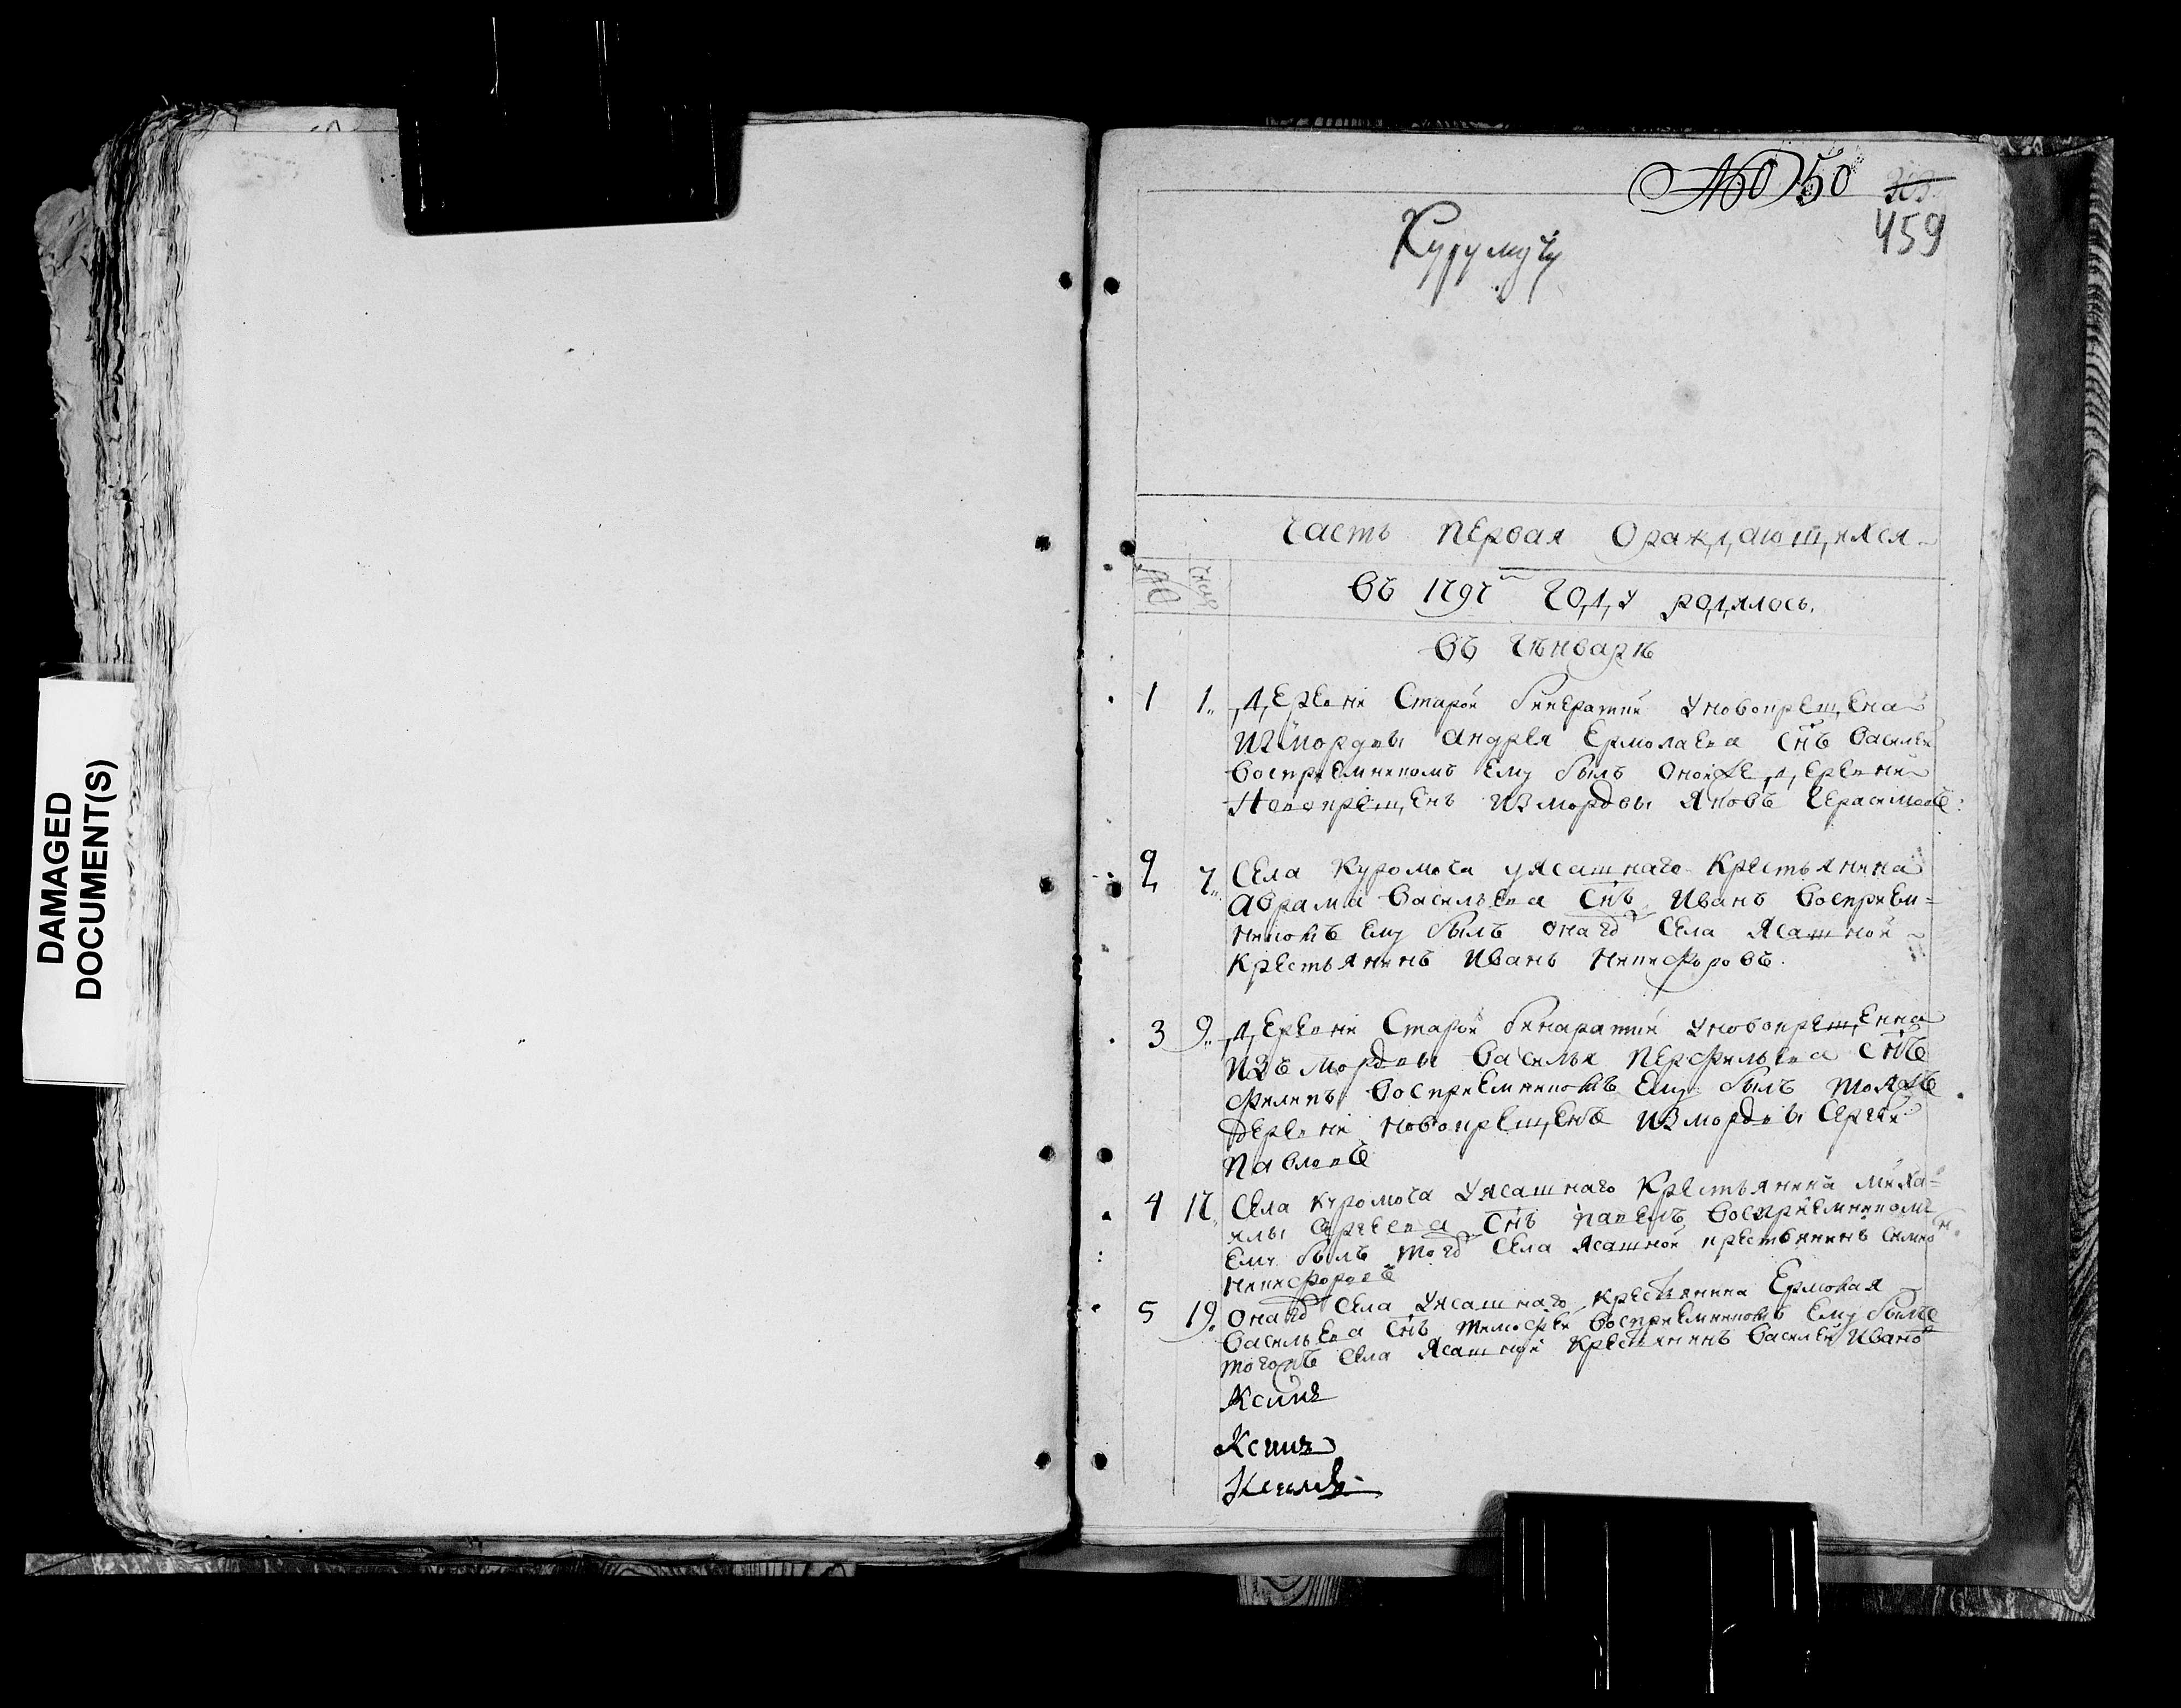 DAMAGED
DOCUMENT(S)
№ 50
459
Курумучу
Часть первая О раждающихся
№ числа
Въ 1797м году родилось.
Въ Генварѣ
1 1. деревни Старой Бинератки у новокрещена
из мордвы Андрея Ермолаева снъ Василей
воспреемникомъ ему былъ оной же деревни
Новокрещенъ из мордвы Яковъ Герасимовъ
2 7. Села Куромоча у ясашнаго крестьянина
Аврама Васильева снъ Иванъ воспреем=
никомъ ему былъ онагож Села Ясашной
крестьянинъ Иванъ Никифоровъ.
3 9. деревни Старой Бинаратки у новокрещенна
изъ мордвы Василья Перфильева снъ
Филипъ воспреемникомъ ему былъ тояжъ
деревни новокрещенъ из мордвы Сергей
Павловъ
4 17. Села Куромоча у ясашнаго крестьянина Миха=
илы Сергеева снъ Павелъ воспреемникомъ
ему былъ тогож Села Ясашной крестьянинъ Семио
Никифоровъ
5 19. онагож Села у ясашнаго крестьянина Ермолая
Васильева снъ Тимофей воспреемникомъ ему былъ
тогожъ Села Ясашной крестьянинъ Василей Ивановъ